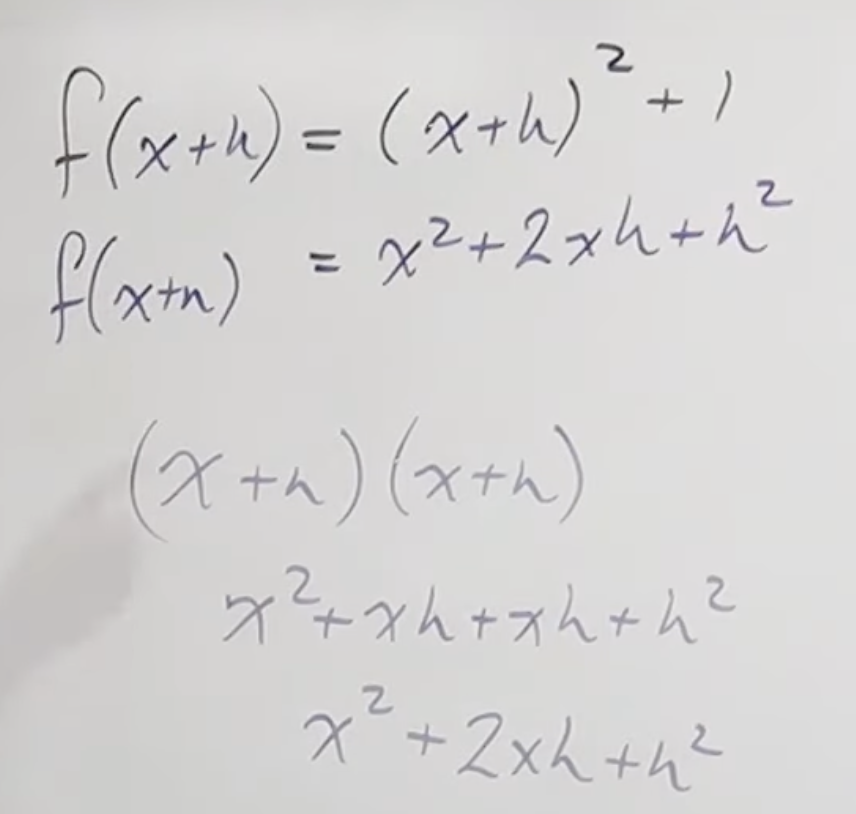 f(x+h) = (x+h)² + 1
f(x+h) = x² + 2xh + h²
(x+h)(x+h)
x² + xh + xh + h²
x² + 2xh + h²